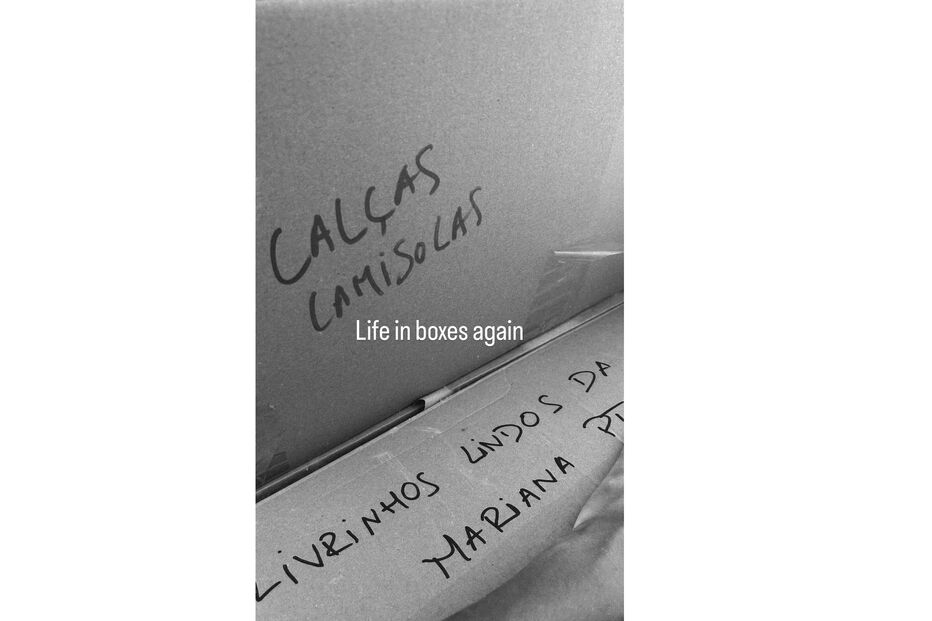 CALÇAS
CAMISOLAS
Life in boxes again
LIVRINHOS LINDOS DA
MARIANA